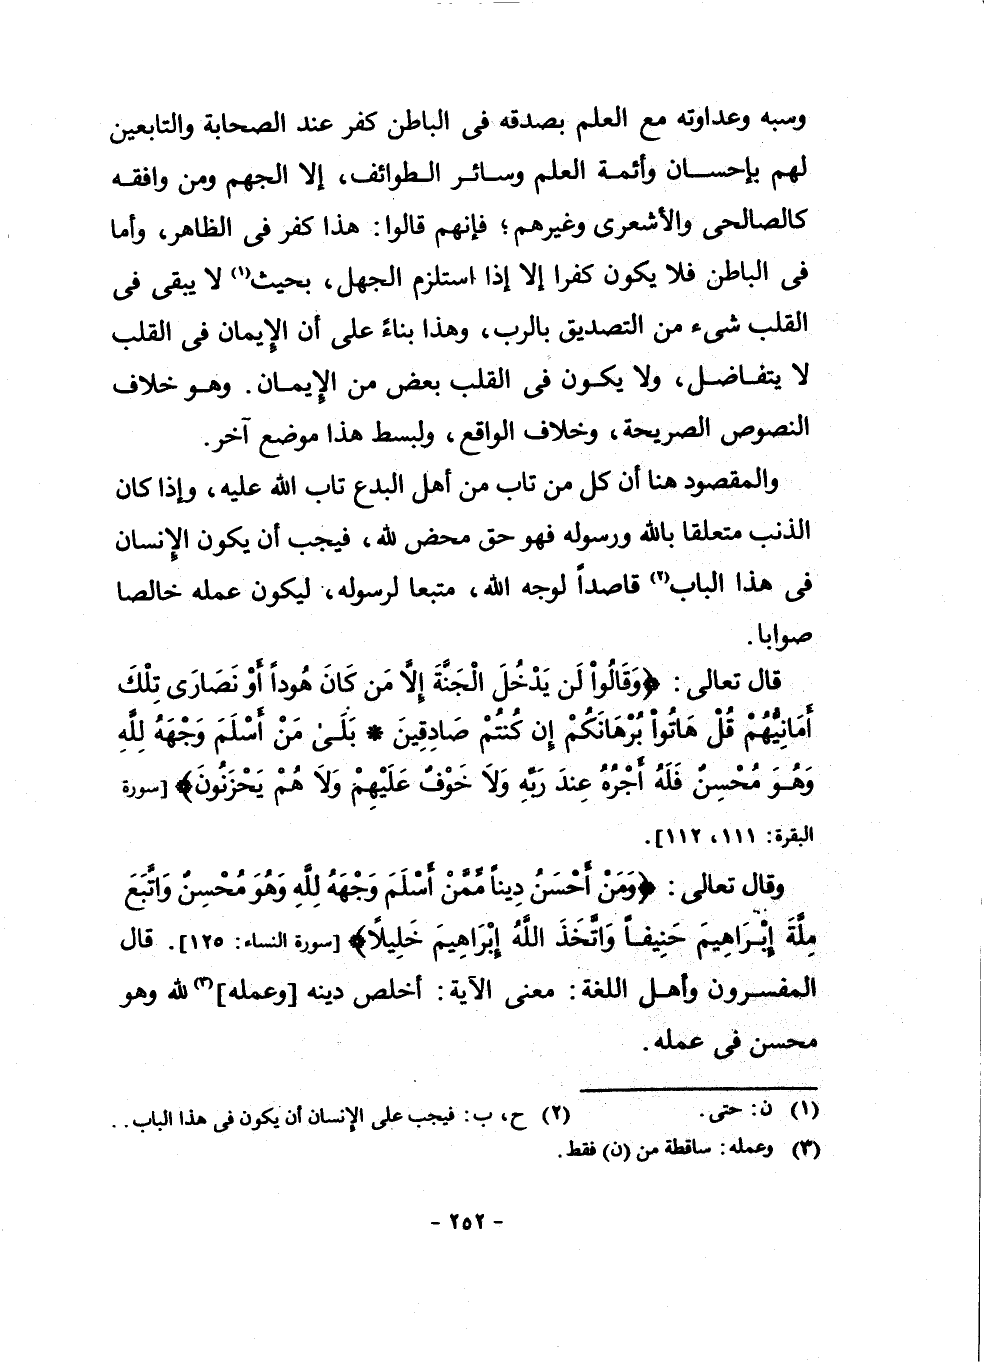 وسبه وعداوته مع العلم بصدقه فى الباطن كفر عند الصحابة والتابعين
لهم بإحسان وأئمة العلم وسائر الطوائف، إلا الجهم ومن وافقه
كالصالحى والأشعرى وغيرهم؛ فإنهم قالوا: هذا كفر فى الظاهر، وأما
فى الباطن فلا يكون كفرا إلا إذا استلزم الجهل، بحيث(١) لا يبقى فى
القلب شىء من التصديق بالرب، وهذا بناءً على أن الإيمان فى القلب
لا يتفاضل، ولا يكون فى القلب بعض من الإيمان. وهو خلاف
النصوص الصريحة، وخلاف الواقع، ولبسط هذا موضع آخر.
والمقصود هنا أن كل من تاب من أهل البدع تاب الله عليه، وإذا كان
الذنب متعلقا بالله ورسوله فهو حق محض لله، فيجب أن يكون الإنسان
فى هذا الباب(٢) قاصداً لوجه الله، متبعا لرسوله، ليكون عمله خالصا
صوابا.
قال تعالى: ﴿وَقَالُواْ لَن يَدْخُلَ الْجَنَّةَ إِلَّا مَن كَانَ هُوداً أَوْ نَصَارَى تِلْكَ
أَمَانِيُّهُمْ قُلْ هَاتُواْ بُرْهَانَكُمْ إِن كُنتُمْ صَادِقِينَ * بَلَىٰ مَنْ أَسْلَمَ وَجْهَهُ لِلَّهِ
وَهُوَ مُحْسِنٌ فَلَهُ أَجْرُهُ عِندَ رَبِّهِ وَلَا خَوْفٌ عَلَيْهِمْ وَلَا هُمْ يَحْزَنُونَ﴾ [سورة
البقرة: ١١١، ١١٢].
وقال تعالى: ﴿وَمَنْ أَحْسَنُ دِيناً مِّمَّنْ أَسْلَمَ وَجْهَهُ لِلَّهِ وَهُوَ مُحْسِنٌ وَاتَّبَعَ
مِلَّةَ إِبْرَاهِيمَ حَنِيفاً وَاتَّخَذَ اللَّهُ إِبْرَاهِيمَ خَلِيلًا﴾ [سورة النساء: ١٢٥]. قال
المفسرون وأهل اللغة: معنى الآية: أخلص دينه [وعمله](٣) لله وهو
محسن فى عمله.
(١) ن: حتى. (٢) ح، ب: فيجب على الإنسان أن يكون فى هذا الباب..
(٣) وعمله: ساقطة من (ن) فقط.
- ٢٥٢ -